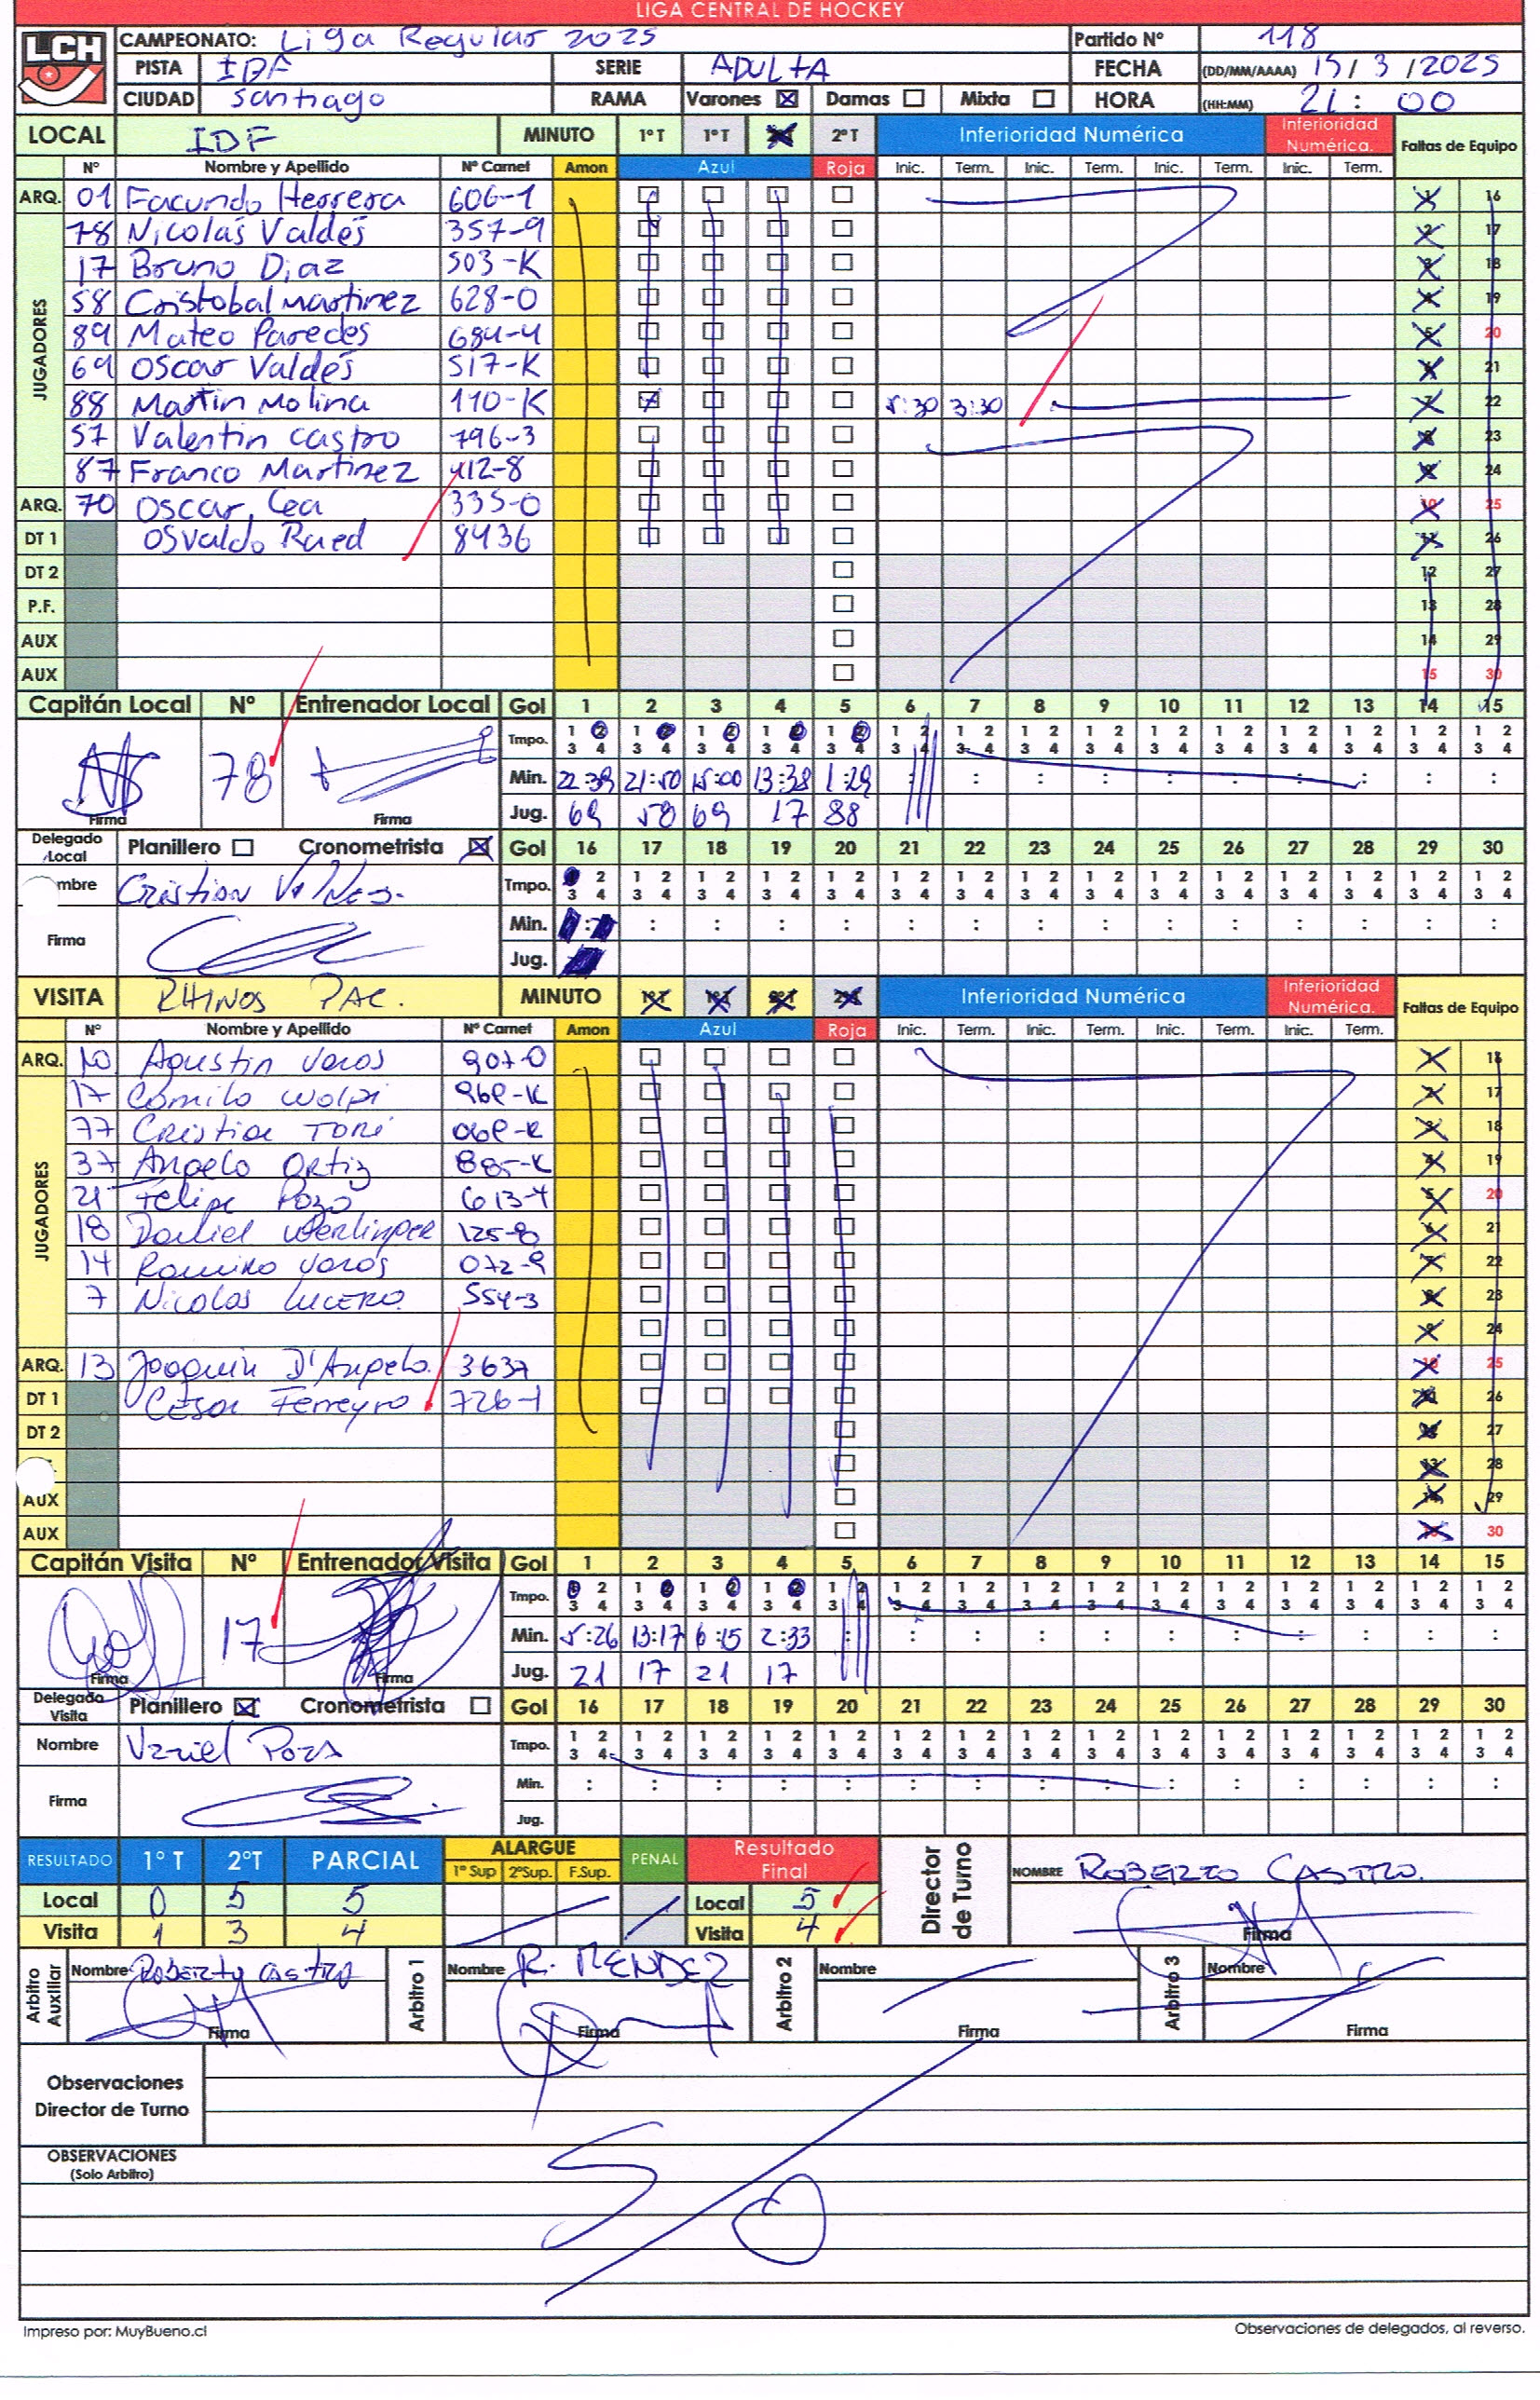 LIGA CENTRAL DE HOCKEY
LCH
CAMPEONATO: Liga Regular 2025 Partido Nº 118
PISTA IDF SERIE ADULTA FECHA (DD/MM/AAAA) 15/3/2025
CIUDAD Santiago RAMA Varones Damas Mixta HORA (HH:MM) 21:00
LOCAL IDF MINUTO 1º T 1º T 2º T Inferioridad Numérica Inferioridad Numérica. Faltas de Equipo
Nº Nombre y Apellido Nº Carnet Amon Azul Roja Inic. Term. Inic. Term. Inic. Term. Inic. Term.
ARQ. 01 Facundo Herrera 606-1 1 16
JUGADORES
78 Nicolás Valdés 357-9 2 17
17 Bruno Diaz 503-K 3 18
58 Cristobal Martinez 628-0 4 19
89 Mateo Paredes 684-4 5 20
69 Oscar Valdés 517-K 6 21
88 Martin Molina 110-K 5:30 3:30 7 22
57 Valentin Castro 796-3 8 23
87 Franco Martinez 412-8 9 24
ARQ. 70 Oscar Cea 335-0 10 25
DT 1 Osvaldo Raed 8436 11 26
DT 2 12 27
P.F. 13 28
AUX 14 29
AUX 15 30
Capitán Local Nº Entrenador Local Gol 1 2 3 4 5 6 7 8 9 10 11 12 13 14 15
Tmpo. 1 2 3 4 1 2 3 4 1 2 3 4 1 2 3 4 1 2 3 4 1 2 3 4 1 2 3 4 1 2 3 4 1 2 3 4 1 2 3 4 1 2 3 4 1 2 3 4 1 2 3 4 1 2 3 4 1 2 3 4
78 Min. 22:39 21:50 15:00 13:38 1:29
Firma Firma Jug. 69 58 69 17 88
Delegado Local Planillero Cronometrista Gol 16 17 18 19 20 21 22 23 24 25 26 27 28 29 30
mbre Cristian Valdes. Tmpo. 1 2 3 4 1 2 3 4 1 2 3 4 1 2 3 4 1 2 3 4 1 2 3 4 1 2 3 4 1 2 3 4 1 2 3 4 1 2 3 4 1 2 3 4 1 2 3 4 1 2 3 4 1 2 3 4 1 2 3 4
Firma Min.
Jug.
VISITA RHINOS PAC. MINUTO 1º T 1º T 2º T 2º T Inferioridad Numérica Inferioridad Numérica. Faltas de Equipo
Nº Nombre y Apellido Nº Carnet Amon Azul Roja Inic. Term. Inic. Term. Inic. Term. Inic. Term.
ARQ. 10 Agustin Varas 907-0 1 16
JUGADORES
17 Camilo Wolpi 968-K 2 17
77 Cristian Toré 068-K 3 18
37 Angelo Ortiz 885-K 4 19
21 Felipe Pozo 613-4 5 20
18 Daniel Werlinger 125-8 6 21
14 Ramiro Varas 072-9 7 22
7 Nicolas Lucero. 554-3 8 23
9 24
ARQ. 13 Joaquin D'Angelo. 3637 10 25
DT 1 Cesar Ferreyro 726-1 11 26
DT 2 12 27
13 28
AUX 14 29
AUX 15 30
Capitán Visita Nº Entrenador Visita Gol 1 2 3 4 5 6 7 8 9 10 11 12 13 14 15
Tmpo. 1 2 3 4 1 2 3 4 1 2 3 4 1 2 3 4 1 2 3 4 1 2 3 4 1 2 3 4 1 2 3 4 1 2 3 4 1 2 3 4 1 2 3 4 1 2 3 4 1 2 3 4 1 2 3 4 1 2 3 4
17 Min. 5:26 13:17 6:15 2:33
Firma Firma Jug. 21 17 21 17
Delegado Visita Planillero Cronometrista Gol 16 17 18 19 20 21 22 23 24 25 26 27 28 29 30
Nombre Uziel Poza Tmpo. 1 2 3 4 1 2 3 4 1 2 3 4 1 2 3 4 1 2 3 4 1 2 3 4 1 2 3 4 1 2 3 4 1 2 3 4 1 2 3 4 1 2 3 4 1 2 3 4 1 2 3 4 1 2 3 4 1 2 3 4
Firma Min.
Jug.
RESULTADO 1º T 2ºT PARCIAL ALARGUE 1º Sup 2ºSup. F.Sup. PENAL Resultado Final Director de Turno NOMBRE ROBERTO CASTRO.
Local 0 5 5 Local 5
Visita 1 3 4 Visita 4 Firma
Arbitro Auxiliar Nombre Roberto Castro Arbitro 1 Nombre R. MENDEZ Arbitro 2 Nombre Arbitro 3 Nombre
Firma Firma Firma Firma
Observaciones
Director de Turno
OBSERVACIONES
(Solo Arbitro)
S/O
Impreso por: MuyBueno.cl Observaciones de delegados, al reverso.